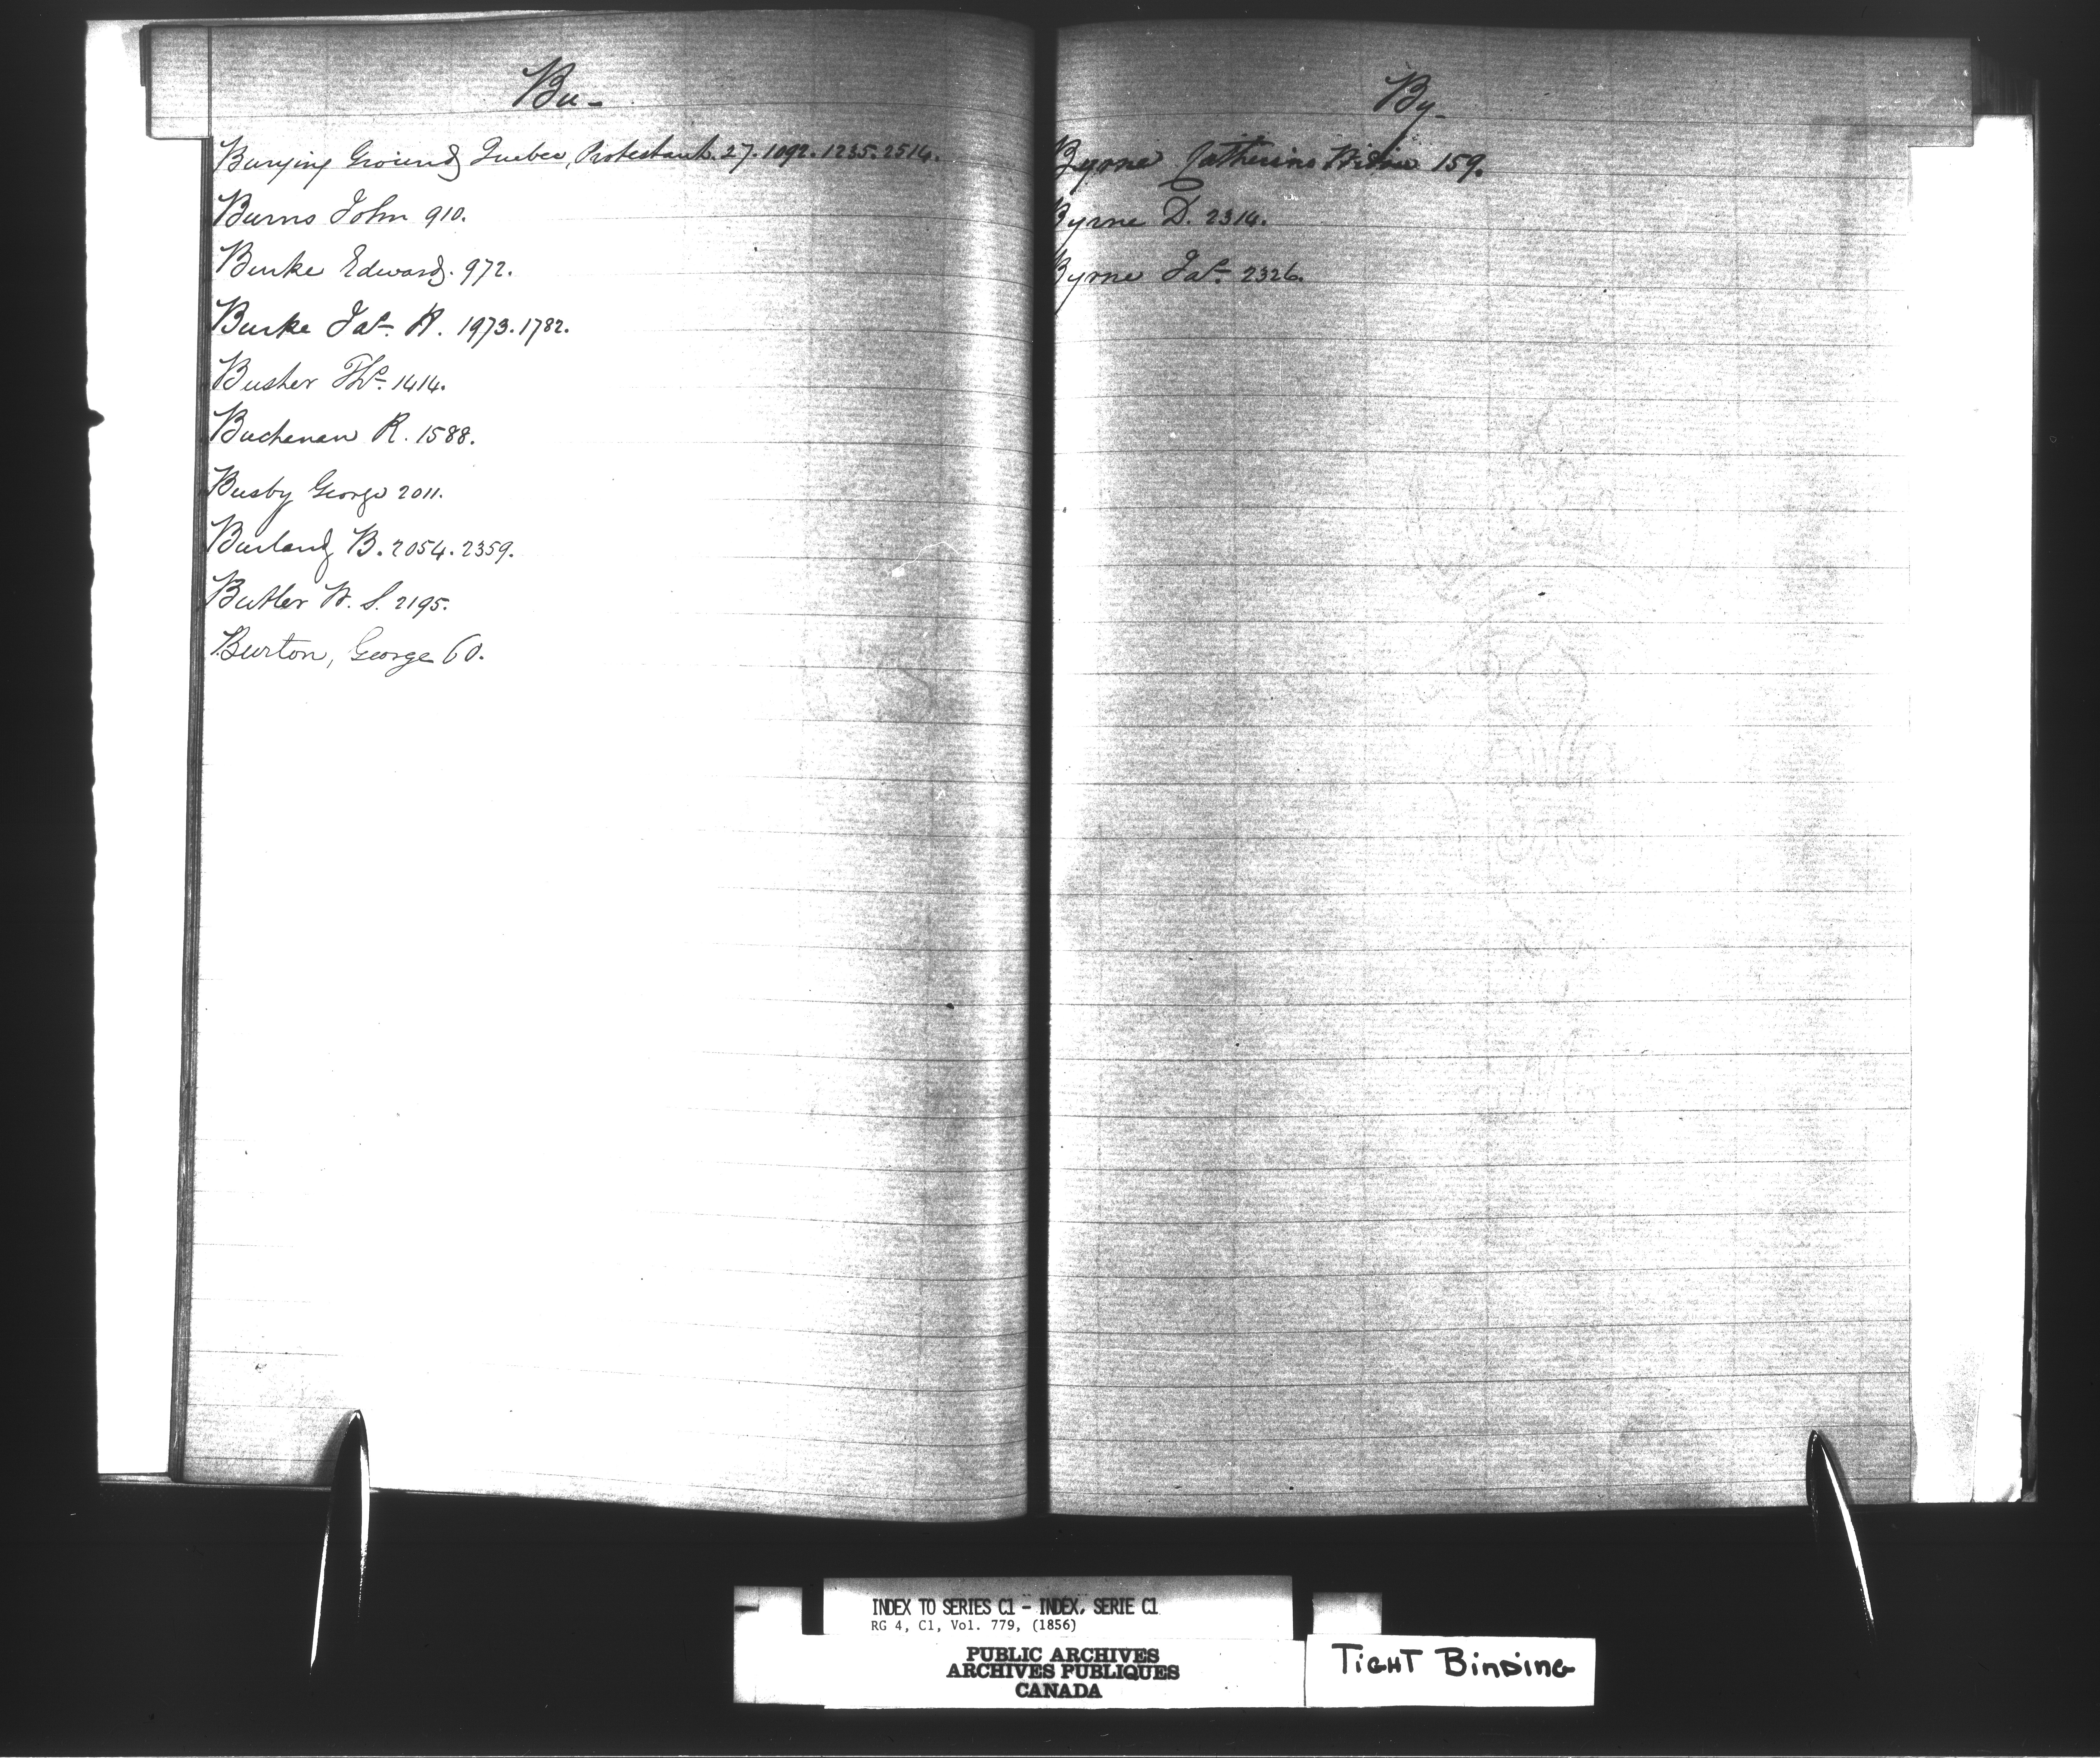 Bu-
Burying Ground Quebec, Protestant. 27. 1092. 1235. 2514.
Burns John 910.
Burke Edward. 972.
Burke Jas. H. 1973. 1782.
Busher Ths. 1414.
Buchanan R. 1588.
Busby George 2011.
Burland B. 2054. 2359.
Butler W. S. 2195.
Burton, George 60.
By-
Byrne Catherine Widow 159.
Byrne D. 2314.
Byrne Jas. 2326.
INDEX TO SERIES C1 - INDEX, SERIE C1
RG 4, C1, Vol. 779, (1856)
PUBLIC ARCHIVES
ARCHIVES PUBLIQUES
CANADA
TIGHT BINDING